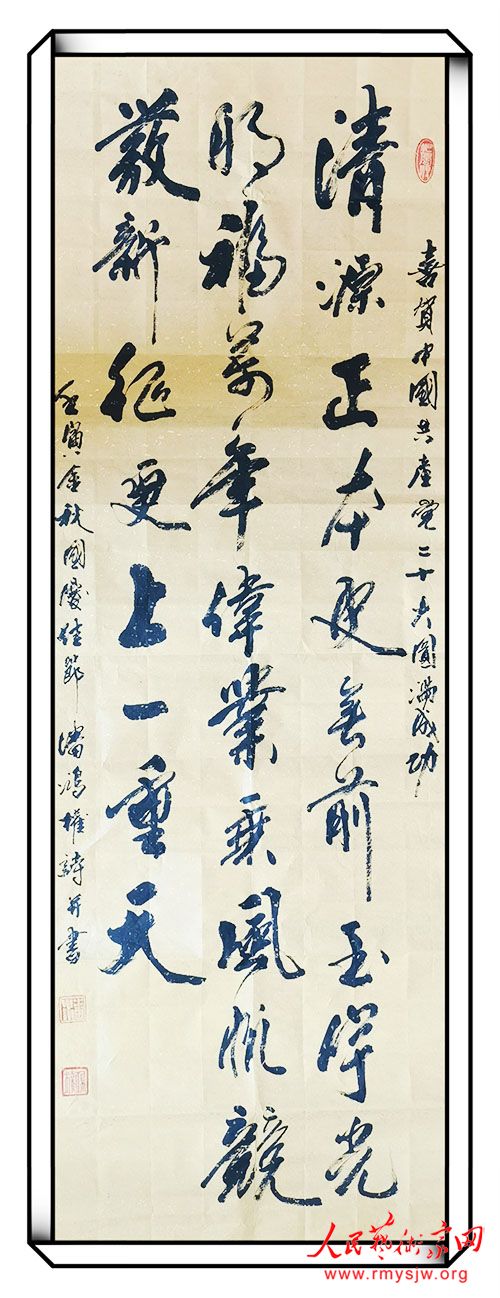 喜賀中國共產党二十大圓滿成功
清源正本史無前玉宇光
明福萬年偉業乘風帆競
發新征更上一重天
壬寅金秋國慶佳節 潘鴻權詩并書
人民藝術家网
www.rmysjw.org